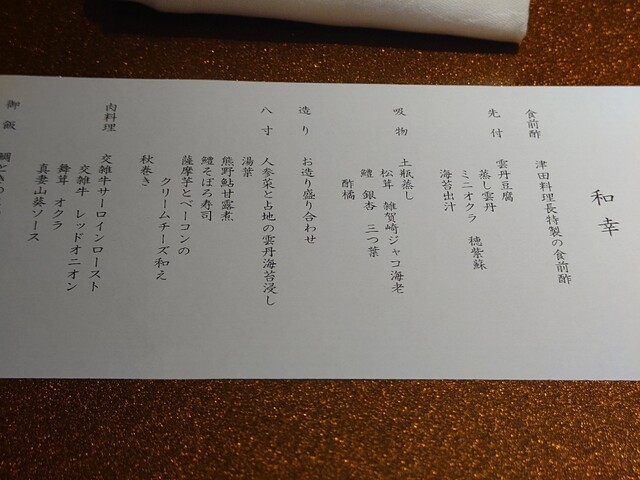 和幸
食前酢
津田料理長特製の食前酢
先付
雲丹豆腐
蒸し雲丹 穂紫蘇
ミニオクラ
海苔出汁
吸物
土瓶蒸し
松茸 雑賀崎ジャコ海老
鱧 銀杏 三つ葉
酢橘
造り
お造り盛り合わせ
八寸
人参菜と占地の雲丹海苔浸し
湯葉
熊野鮎甘露煮
鱧そぼろ寿司
薩摩芋とベーコンの
クリームチーズ和え
秋巻き
肉料理
交雑牛サーロインロースト
交雑牛 レッドオニオン
舞茸 オクラ
真妻山葵ソース
御飯